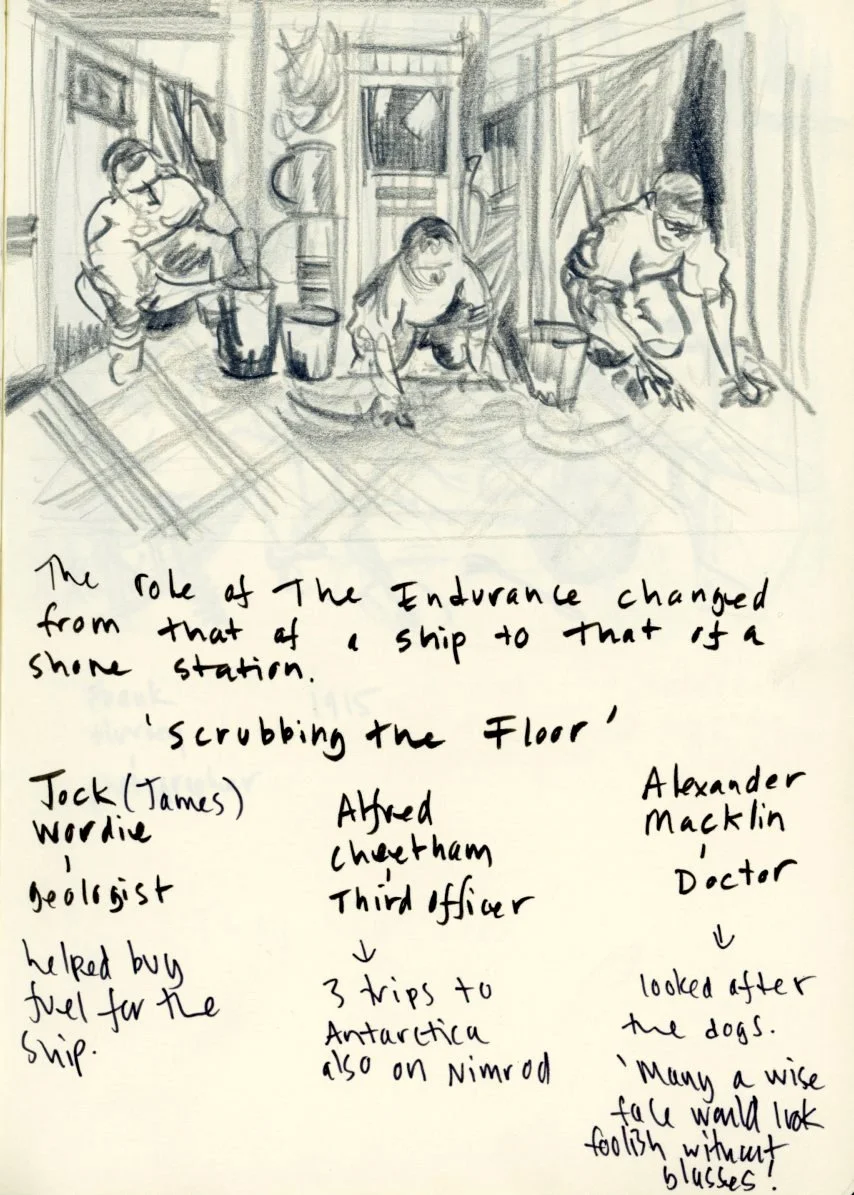 The role of The Endurance changed
from that of a ship to that of a
shore station.
'Scrubbing the Floor'
Jock (James)
Wordie
geologist
helped buy
fuel for the
ship.
Alfred
Cheetham
Third Officer
↓
3 trips to
Antarctica
also on Nimrod
Alexander
Macklin
Doctor
↓
looked after
the dogs.
'Many a wise
face would look
foolish without
glasses!